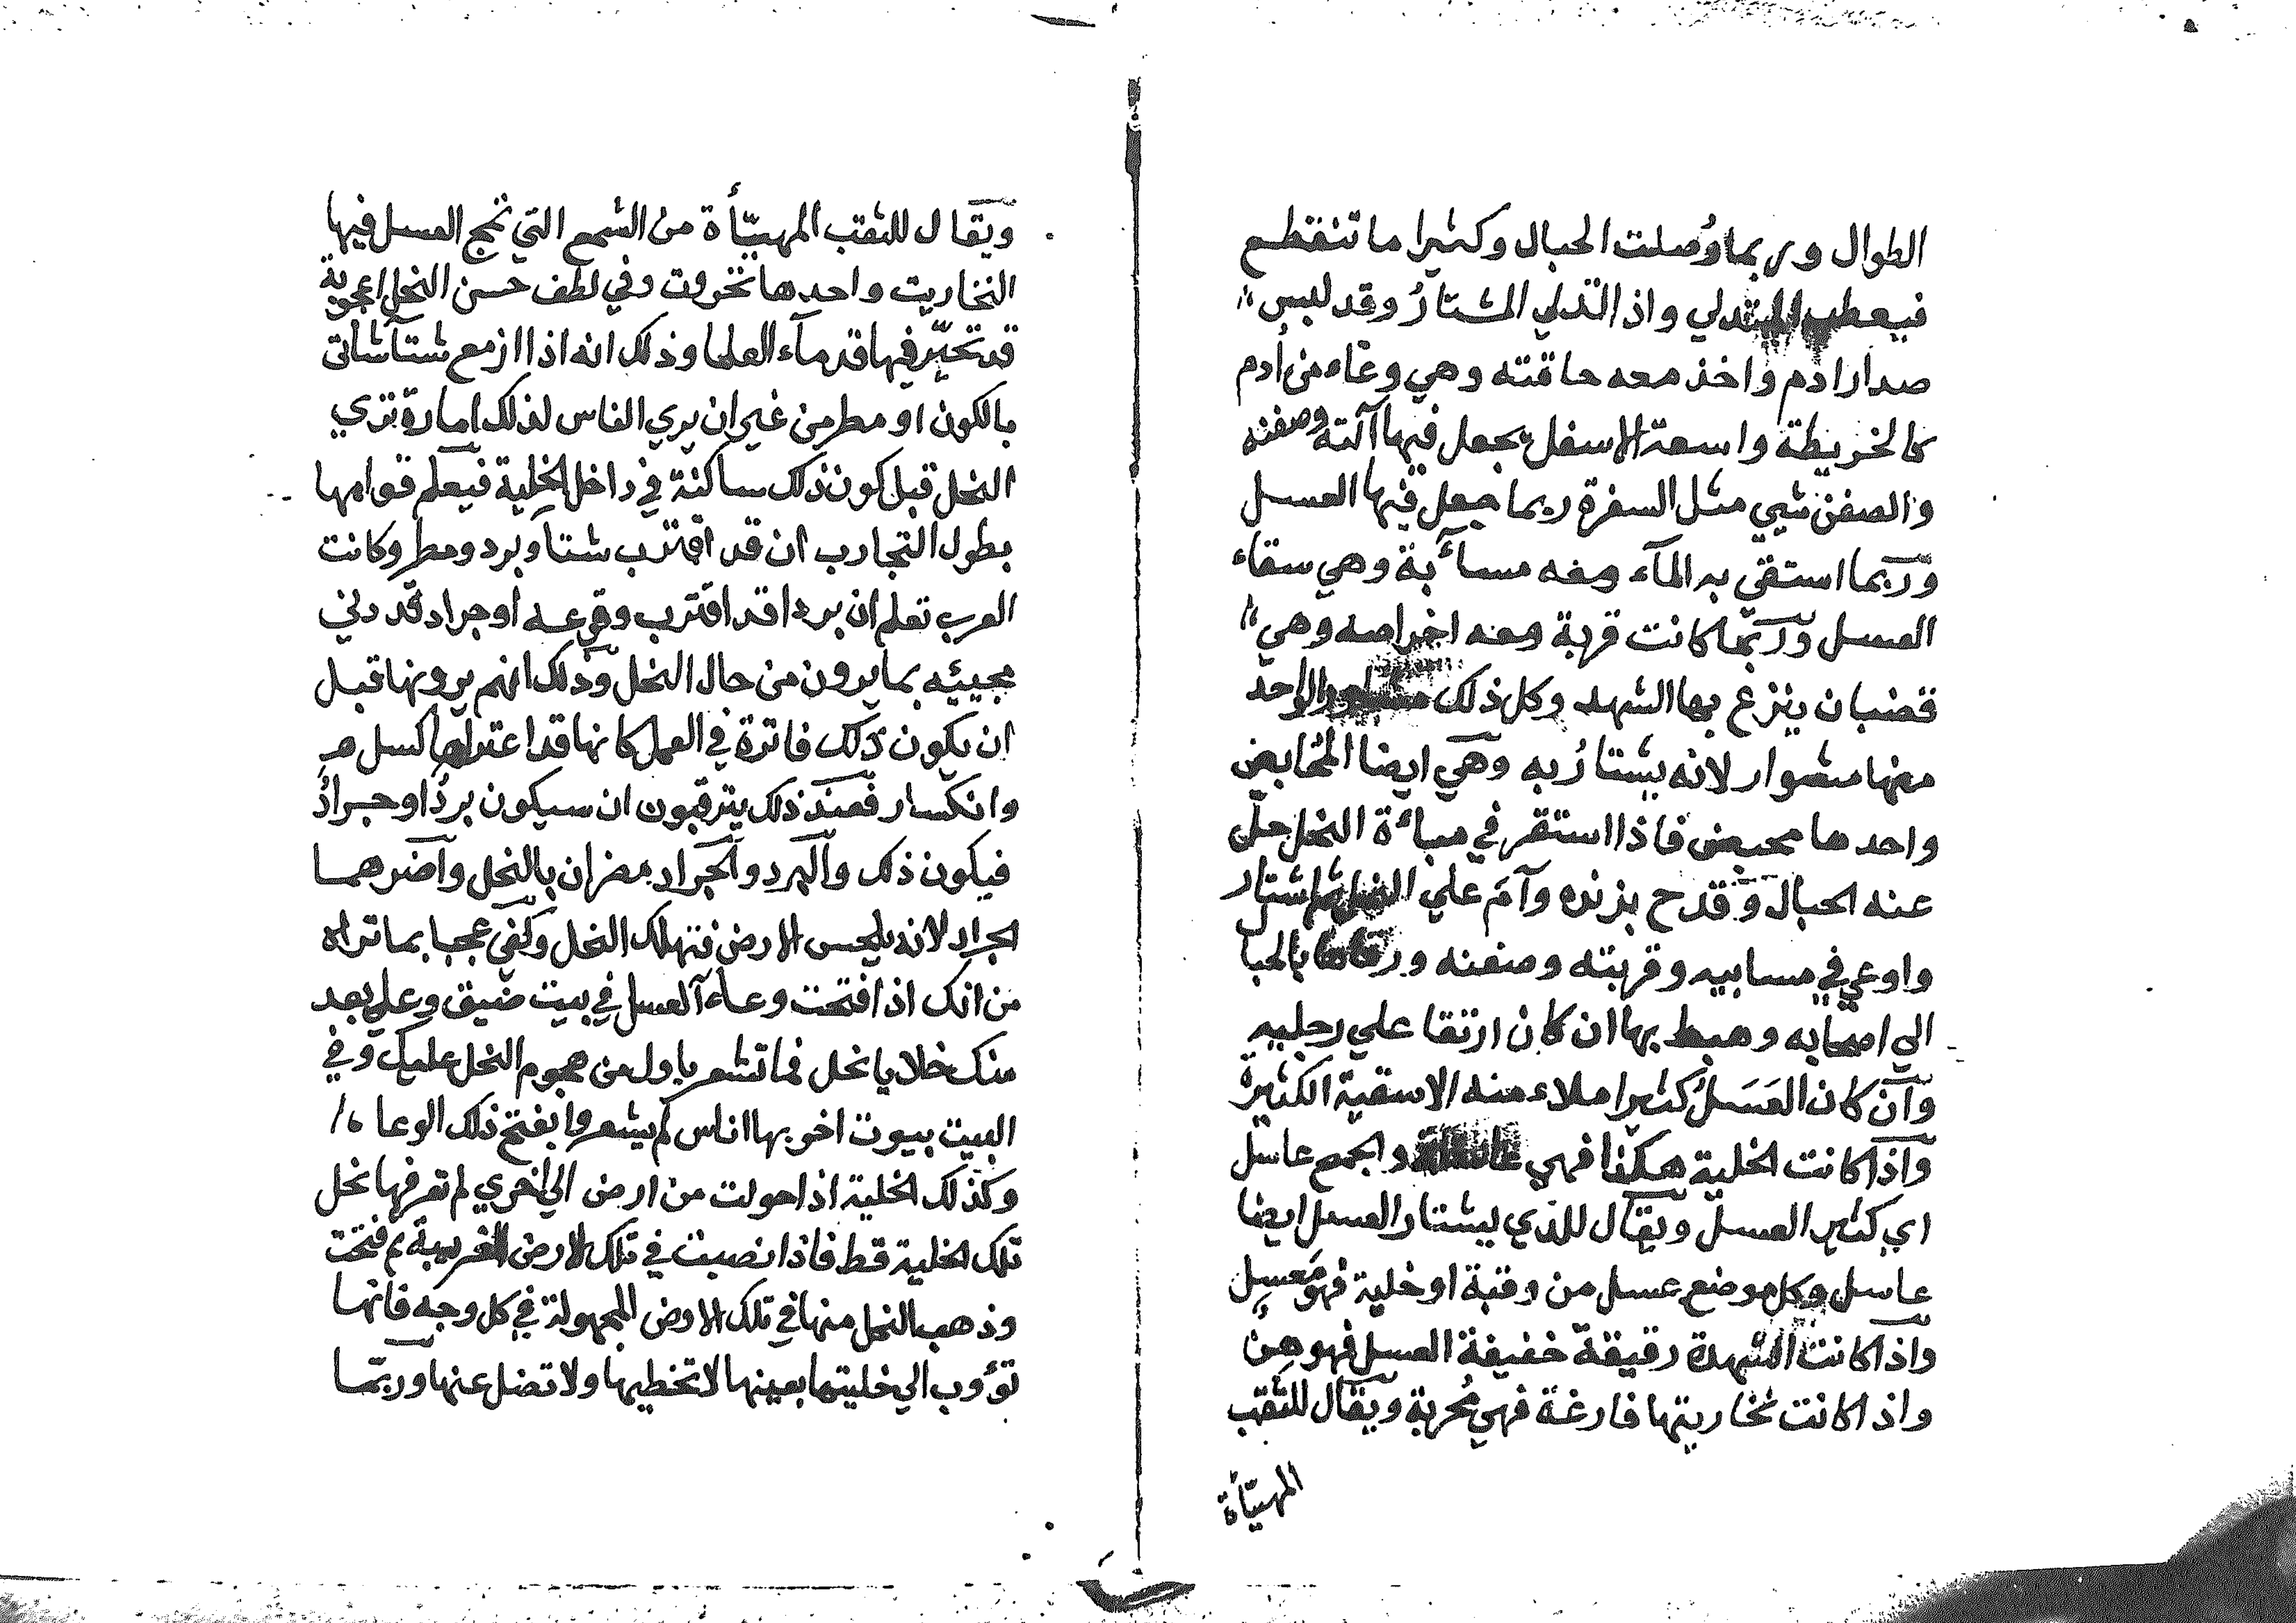 الطوال وربما وُصلت الحبال وكثيرا ما تنقطع
فيعطب المتدلي واذا تدلي المشتارُ وقد لبس
صدار ادم واخذ معه حافته وهي وعاء من أدم
كالخريطة واسعة الاسفل يجعل فيها آلته وصفنه
والصفن شيي مثل السفرة ربما جعل فيها العسل
وربما استقي به المآء ومعه مسأبة وهي سقاء
العسل وربّما كانت قربة ومعه اخراصه وهي
قضبان ينزع بها الشهد وكل ذلك والواحد
منها مشوار لانه يشتارُ به وهي ايضا المحابض
واحدها محبض فاذا استقر في مبأة النحل حلّ
عنه الحبال وقدح بزنده وآم علي اشتار
واوعي في مسابيه وقربته وصفنه بالحبا
الي اصحابه وهبط بها ان كان ارتقا علي رجليه
وان كان العَسَلُ كثيرا ملاء منه الاسقية الكثيرة
واذا كانت الخلية هكذا فهي والجمع عاسل
اي كثير العسل ويقال للذي يشتار العسل ايضا
عاسل وكل موضع عسل من وقبة او خلية فهو مَعسِل
واذا كانت الشهدة رقيقة خفيفة العسل فهو هِن
واذا كانت نخاريتها فارغة فهي مُخربة ويقال للثقب
المهيّأة
ويقال للثقب المهيّأة من الشمع التي تمج العسل فيها
النخاريت واحدها نخروت وفي لطف حسن النحل اعجوبة
قد تحيّر فيها قدمآء العلما وذلك انه اذا ازمع شتآ شاتى
بالكون او مطر من غير ان يري الناس لذلك امارة تري
النحل قبل كون ذلك ساكنة في داخل الخلية فيعلم قوامها
بطول التجارب ان قد اقترب شتا وبرد ومطر وكانت
العرب تعلم ان بردا قد اقترب وقوعه او جراد قد دني
مجيئه بما يرون من حال النحل وذلك انهم يرونها قبل
ان يكون ذلك فاترة في العمل كانها قد اعتراها كسل
وانكسار فعند ذلك يترقبون ان سيكون بردُ او جرادُ
فيكون ذلك والبرد والجراد مضران بالنحل واضرهما
الجراد لانه يلحس الارض فتهلك النحل وكفي عجبا بما تراه
من انك اذا فتحت وعاء العسل في بيت ضيق وعلي بعد
منك خلايا نحل فما تشعر باول من هجوم النحل عليك وفي
البيت بيوت اخو بها اناس لم يشعروا بفتح ذلك الوعاء
وكذلك الخلية اذا حولت من ارض الي اخري لم تعرفها نحل
تلك الخلية قط فاذا نصبت في تلك الارض الغريبة ثم فتحت
وذهب النحل منها في تلك الارض المجهولة في كل وجه فانها
تؤوب الي خليتها بعينها لا تخطيها ولا تضل عنها وربّما